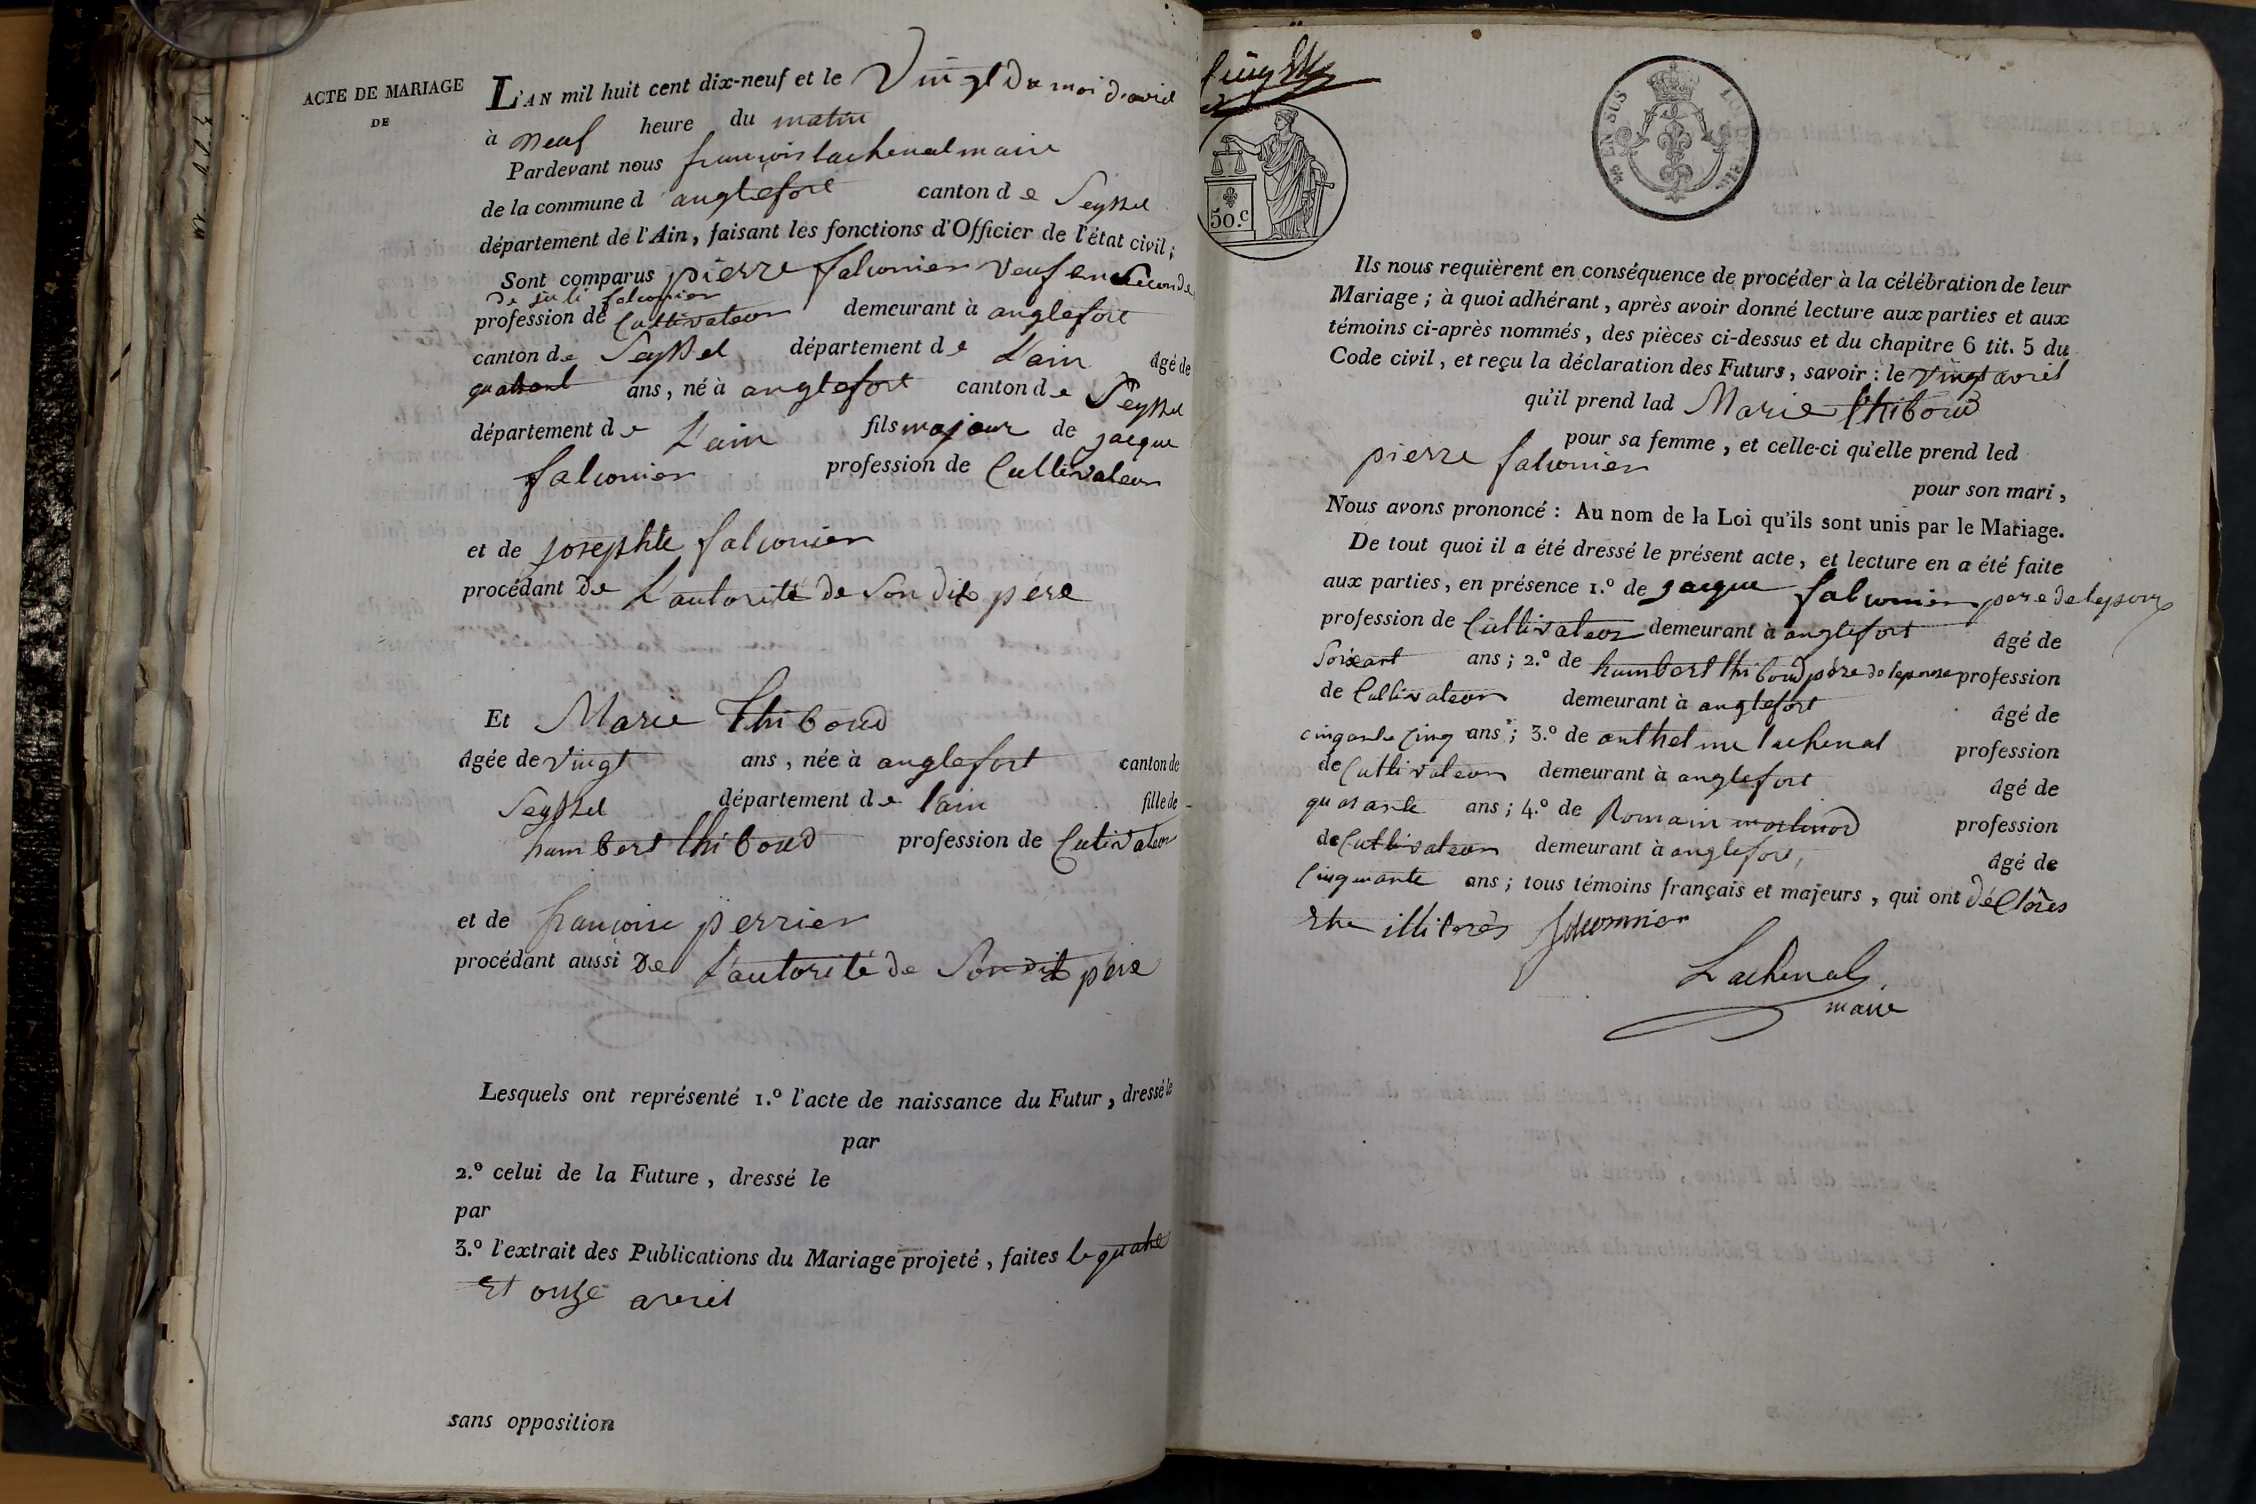 ACTE DE MARIAGE
DE
L'AN mil huit cent dix-neuf et le Vingt du moi d'avril
à neuf heure du matin
Pardevant nous françois lachenal maire
de la commune d'anglefort canton de Seyssel
département de l'Ain, faisant les fonctions d'Officier de l'état civil;
Sont comparus pierre falconier veuf en seconde
de falconier
profession de Cultivateur demeurant à anglefort
canton de Seyssel département de L'ain âgé de
quarant ans, né à anglefort canton de Seyssel
département de L'ain fils majeur de jacque
falconier profession de Cultivateur
et de josephte falconier
procédant de L'autorité de Son dit père
Et Marie Thiboud
âgée de vingt ans, née à anglefort canton de
Seyssel département de l'ain fille de
humbert thiboud profession de Cultivateur
et de françoise perrier
procédant aussi de L'autorité de Son dit père
Lesquels ont représenté 1.º l'acte de naissance du Futur, dressé le
par
2.º celui de la Future, dressé le
par
3.º l'extrait des Publications du Mariage projeté, faites le quatre
Et onze avril
sans opposition
50.c
Ils nous requièrent en conséquence de procéder à la célébration de leur
Mariage; à quoi adhérant, après avoir donné lecture aux parties et aux
témoins ci-après nommés, des pièces ci-dessus et du chapitre 6 tit. 5 du
Code civil, et reçu la déclaration des Futurs, savoir: le vingt avril
qu'il prend lad Marie thiboud
pour sa femme, et celle-ci qu'elle prend led
pierre falconier
pour son mari,
Nous avons prononcé: Au nom de la Loi qu'ils sont unis par le Mariage.
De tout quoi il a été dressé le présent acte, et lecture en a été faite
aux parties, en présence 1.º de jacque falconier pere de lepoux
profession de Cultivateur demeurant à anglefort âgé de
Soixant ans; 2.º de humbert thiboud père de lepouse profession
de Cultivateur demeurant à anglefort âgé de
cinqante cinq ans; 3.º de anthelme lachenal profession
de Cultivateur demeurant à anglefort âgé de
quarante ans; 4.º de Romain martinod profession
de Cultivateur demeurant à anglefort, âgé de
cinquante ans; tous témoins français et majeurs, qui ont déClarés
Etre illiterés falconnier
Lachenal
maire